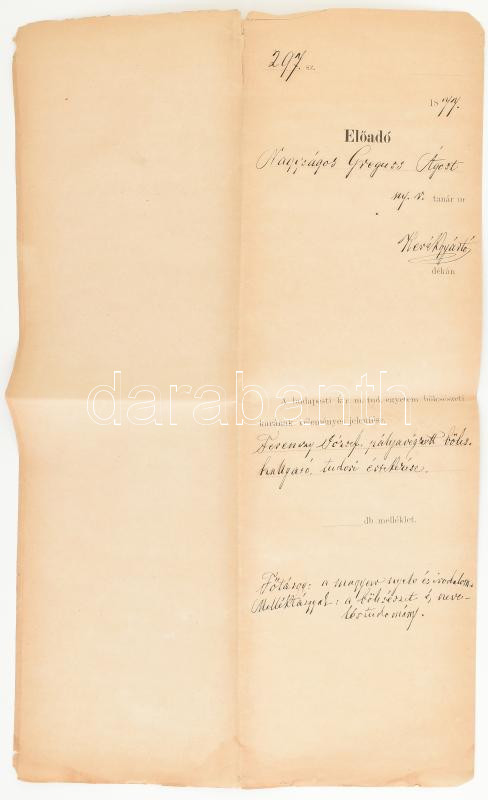 297. sz.
1877.
Előadó
Nagyságos Greguss Ágost
ny. r. tanár úr
Kerékgyártó
dékán
A budapesti kir. m. tud. egyetem bölcsészeti
karának véleményes jelentése
Ferenczy József, pályavégzett bölcs.
hallgató, tudori értekezése.
db. melléklet.
Főtárgy: a magyar nyelv és irodalom.
Melléktárgyak: a bölcsészet és neve-
léstudomány.
darabanth